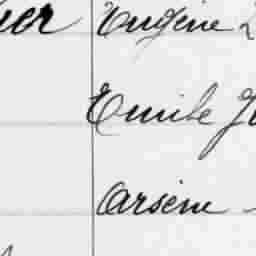 Eugène
Emile
Arsène